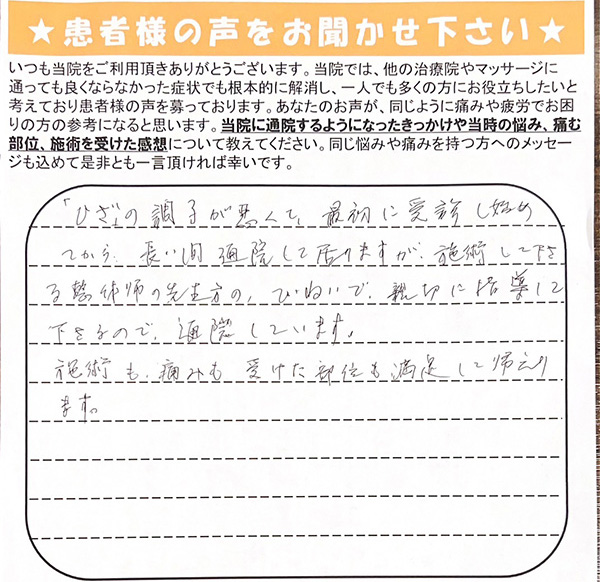 ★患者様の声をお聞かせ下さい★
いつも当院をご利用頂きありがとうございます。当院では、他の治療院やマッサージに
通っても良くならなかった症状でも根本的に解消し、一人でも多くの方にお役立ちしたいと
考えており患者様の声を募っております。あなたのお声が、同じように痛みや疲労でお困
りの方の参考になると思います。当院に通院するようになったきっかけや当時の悩み、痛む
部位、施術を受けた感想について教えてください。同じ悩みや痛みを持つ方へのメッセー
ジも込めて是非とも一言頂ければ幸いです。
「ひざ」の調子が悪くて、最初に受診し始め
てから、長い間通院して居りますが、施術して下さ
る整体師の先生方の、ていねいで、親切に指導して
下さるので、通院しています。
施術も、痛みも 受けた部位も満足して帰えり
ます。